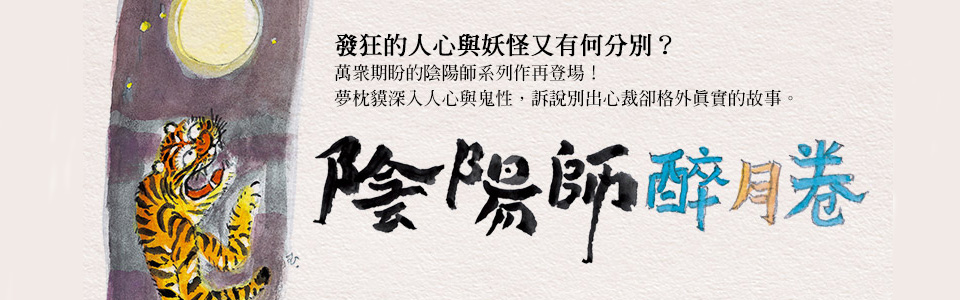 發狂的人心與妖怪又有何分別？
萬衆期盼的陰陽師系列作再登場！
夢枕貘深入人心與鬼性，訴說別出心裁卻格外眞實的故事。
陰陽師醉月卷